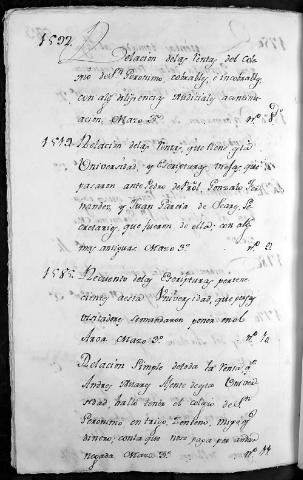 1592. Relacion de las Rentas del Cole
gio de Sn. Geronimo, cobrables, è incobrables,
con algs. diligencias Judiciales à continu
acion, Mazo 3º. nº. 8º.
Relacion de las Rentas, que tiene esta
Universidad, y Escripturas, que
pasaron ante Pedro del Gonzalo Fer
nandez, y Juan Garcia de Se
cretarios, que fueron de ella: con algu
nas antiguas. Mazo 3º. nº. 9.
1585. Recuento de las Escripturas pertene
cientes à esta Universidad, que por
Visitadores se mandaron poner en el
Arca Mazo 3º. nº. 10
Relacion Simple de toda la renta qe.
Andres Suarez Agente de esta Univer
sidad, hallò tenia el colegio de Sn.
Geronimo en trigo, Zenteno,
dinero; con la que no se paga por andar
negada. Mazo 3º. nº. 11